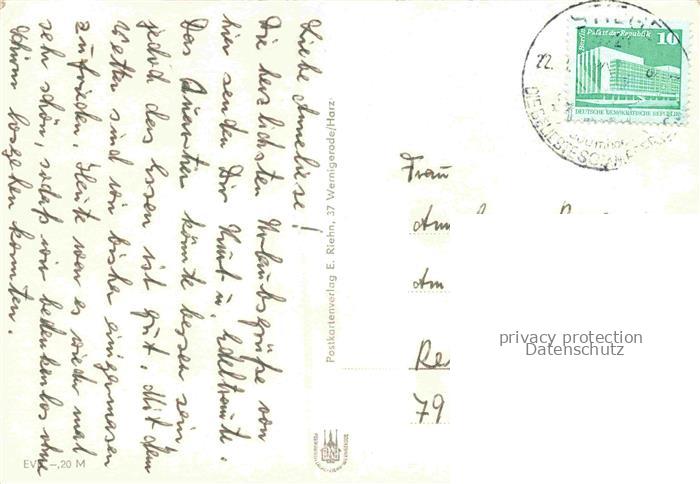 Liebe Anneliese!
Die herzlichsten Urlaubsgrüße von
hier senden Dir Kurt u. Edeltraute.
Das Quartier könnte besser sein,
jedoch das Essen ist gut. Mit dem
Wetter sind wir bisher einigermaßen
zufrieden. Heute war es wieder mal
sehr schön, sodaß wir bedenkenlos ohne
Schirm losgehen konnten.
EVP –,20 M
Postkartenverlag E. Riehn, 37 Wernigerode/Harz
Berlin Palast der Republik 10
DEUTSCHE DEMOKRATISCHE REPUBLIK
22.
Frau
Am
Re
79
privacy protection
Datenschutz